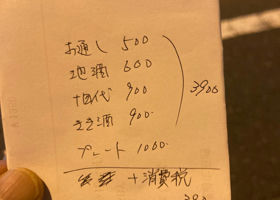 お通し 500
地酒 600
十四代 900
きき酒 900
プレート 1000
3900
+消費税
390